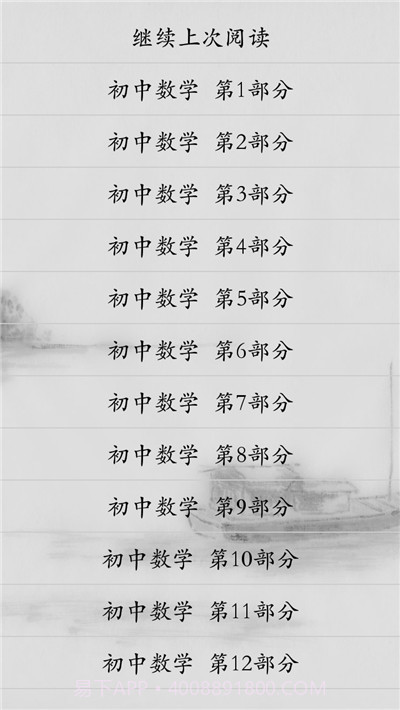 继续上次阅读
初中数学 第1部分
初中数学 第2部分
初中数学 第3部分
初中数学 第4部分
初中数学 第5部分
初中数学 第6部分
初中数学 第7部分
初中数学 第8部分
初中数学 第9部分
初中数学 第10部分
初中数学 第11部分
初中数学 第12部分
易下APP·4008891800.COM